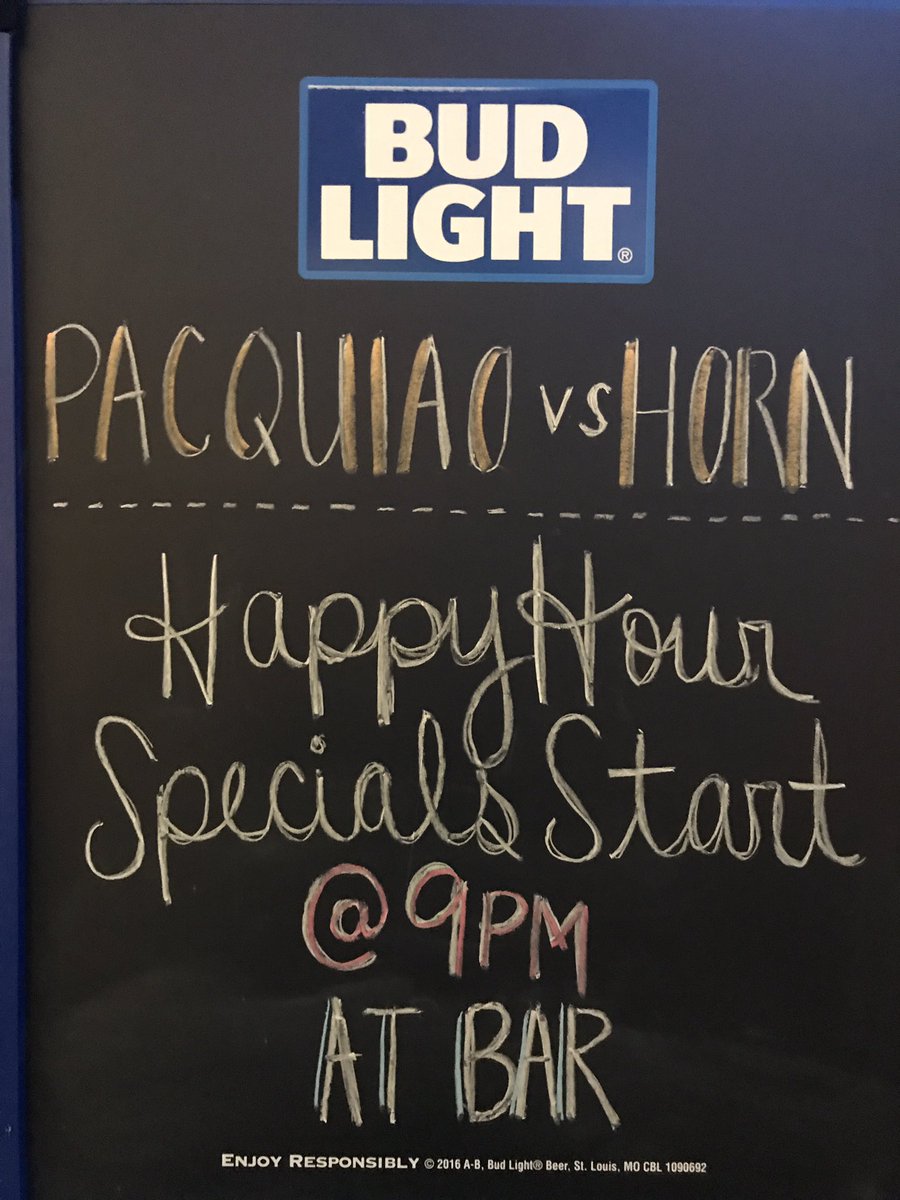 BUD
LIGHT®
PACQUIAO vs HORN
Happy Hour
Specials Start
@ 9PM
AT BAR
ENJOY RESPONSIBLY © 2016 A-B, Bud Light® Beer, St. Louis, MO CBL 1090692